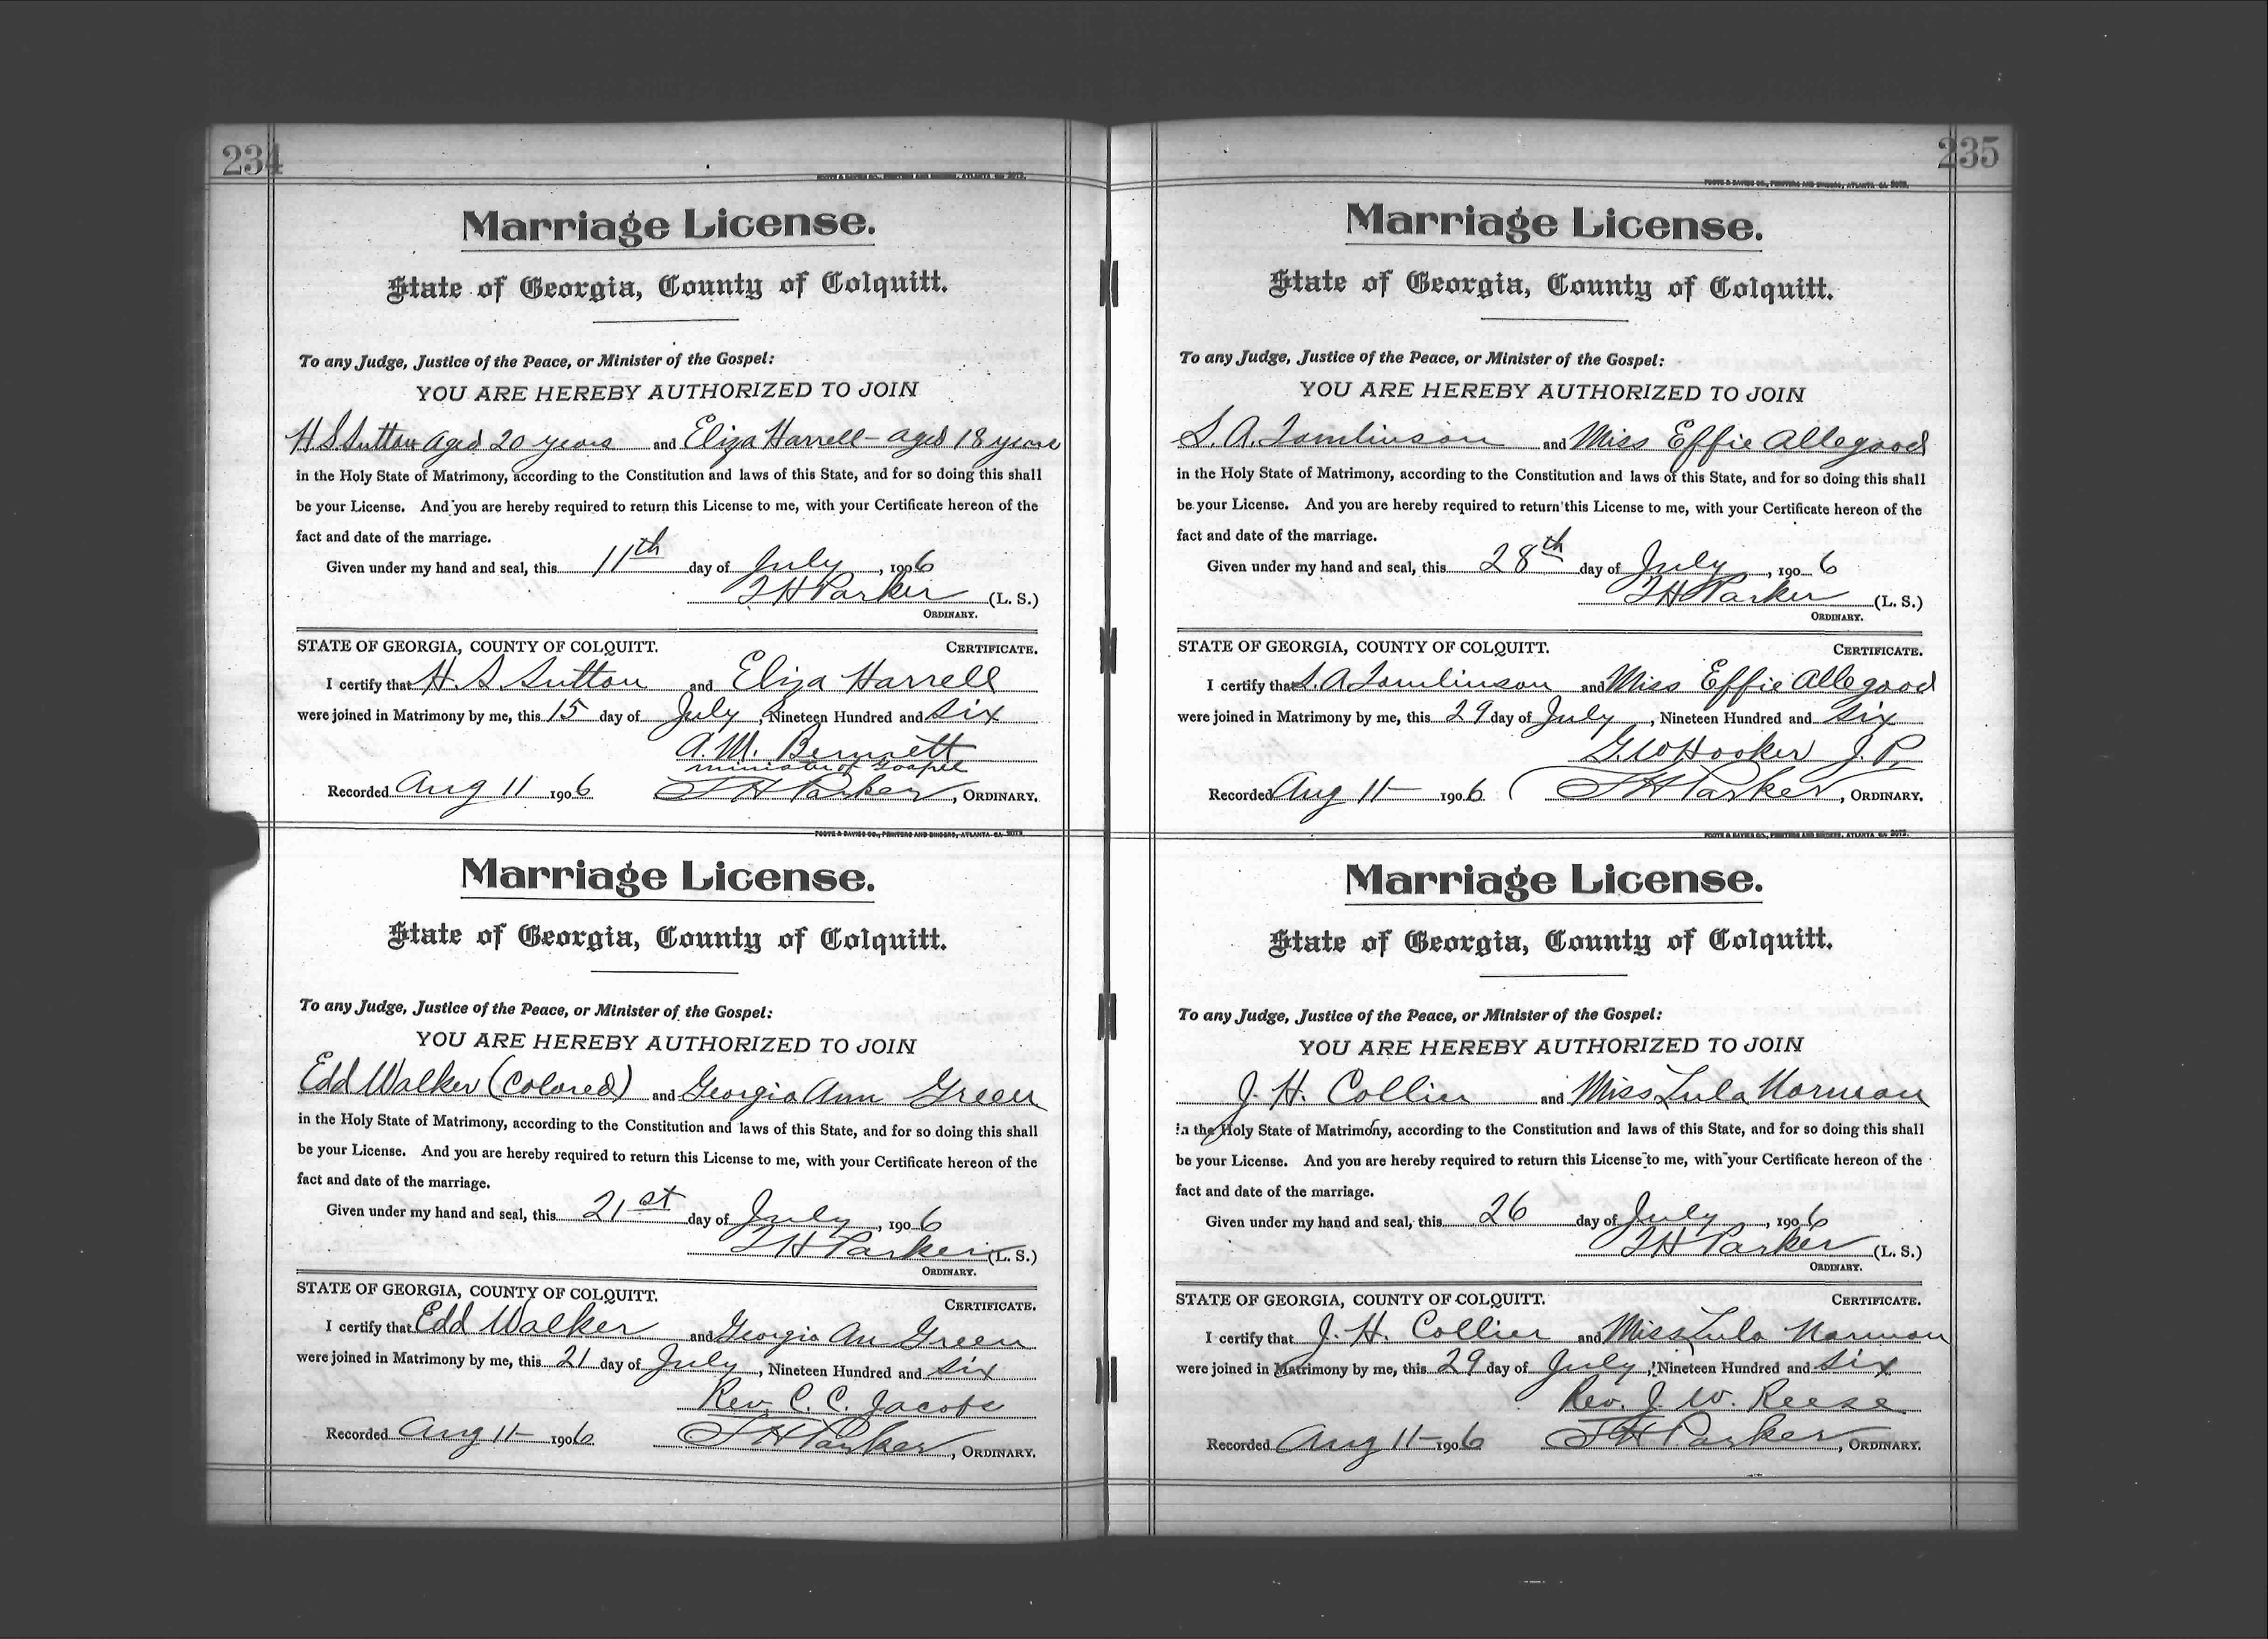 234
FOOTE & DAVIES CO., PRINTERS AND BINDERS, ATLANTA GA. 2072.
Marriage License.
State of Georgia, County of Colquitt.
To any Judge, Justice of the Peace, or Minister of the Gospel:
YOU ARE HEREBY AUTHORIZED TO JOIN
H.S. Sutton aged 20 years and Eliza Harrell - aged 18 years
in the Holy State of Matrimony, according to the Constitution and laws of this State, and for so doing this shall
be your License. And you are hereby required to return this License to me, with your Certificate hereon of the
fact and date of the marriage.
Given under my hand and seal, this 11th day of July, 1906
T H Parker (L. S.)
ORDINARY.
STATE OF GEORGIA, COUNTY OF COLQUITT. CERTIFICATE.
I certify that H. S. Sutton and Eliza Harrell
were joined in Matrimony by me, this 15 day of July, Nineteen Hundred and six
A. M. Bennett
minister of Gospel
Recorded Aug 11 1906 T H Parker, ORDINARY.
FOOTE & DAVIES CO., PRINTERS AND BINDERS, ATLANTA GA. 2072.
Marriage License.
State of Georgia, County of Colquitt.
To any Judge, Justice of the Peace, or Minister of the Gospel:
YOU ARE HEREBY AUTHORIZED TO JOIN
Edd Walker (Colored) and Georgia Ann Green
in the Holy State of Matrimony, according to the Constitution and laws of this State, and for so doing this shall
be your License. And you are hereby required to return this License to me, with your Certificate hereon of the
fact and date of the marriage.
Given under my hand and seal, this 21st day of July, 1906
T H Parker (L. S.)
ORDINARY.
STATE OF GEORGIA, COUNTY OF COLQUITT. CERTIFICATE.
I certify that Edd Walker and Georgia An Green
were joined in Matrimony by me, this 21 day of July, Nineteen Hundred and six
Rev. C. C. Jacobs
Recorded Aug 11- 1906 T H Parker, ORDINARY.
235
FOOTE & DAVIES CO., PRINTERS AND BINDERS, ATLANTA GA. 2072.
Marriage License.
State of Georgia, County of Colquitt.
To any Judge, Justice of the Peace, or Minister of the Gospel:
YOU ARE HEREBY AUTHORIZED TO JOIN
S. A. Tomlinson and Miss Effie Allegood
in the Holy State of Matrimony, according to the Constitution and laws of this State, and for so doing this shall
be your License. And you are hereby required to return this License to me, with your Certificate hereon of the
fact and date of the marriage.
Given under my hand and seal, this 28th day of July, 190 6
T H Parker (L. S.)
ORDINARY.
STATE OF GEORGIA, COUNTY OF COLQUITT. CERTIFICATE.
I certify that S. A Tomlinson and Miss Effie Allegood
were joined in Matrimony by me, this 29 day of July, Nineteen Hundred and six
G. W Hooker J. P.
Recorded Aug 11- 1906 T H Parker, ORDINARY.
FOOTE & DAVIES CO., PRINTERS AND BINDERS, ATLANTA GA. 2072.
Marriage License.
State of Georgia, County of Colquitt.
To any Judge, Justice of the Peace, or Minister of the Gospel:
YOU ARE HEREBY AUTHORIZED TO JOIN
J. H. Collier and Miss Lula Norman
in the Holy State of Matrimony, according to the Constitution and laws of this State, and for so doing this shall
be your License. And you are hereby required to return this License to me, with your Certificate hereon of the
fact and date of the marriage.
Given under my hand and seal, this 26 day of July, 1906
T H Parker (L. S.)
ORDINARY.
STATE OF GEORGIA, COUNTY OF COLQUITT. CERTIFICATE.
I certify that J. H. Collier and Miss Lula Norman
were joined in Matrimony by me, this 29 day of July, Nineteen Hundred and six
Rev. J. W. Reese
Recorded Aug 11- 1906 T H Parker, ORDINARY.